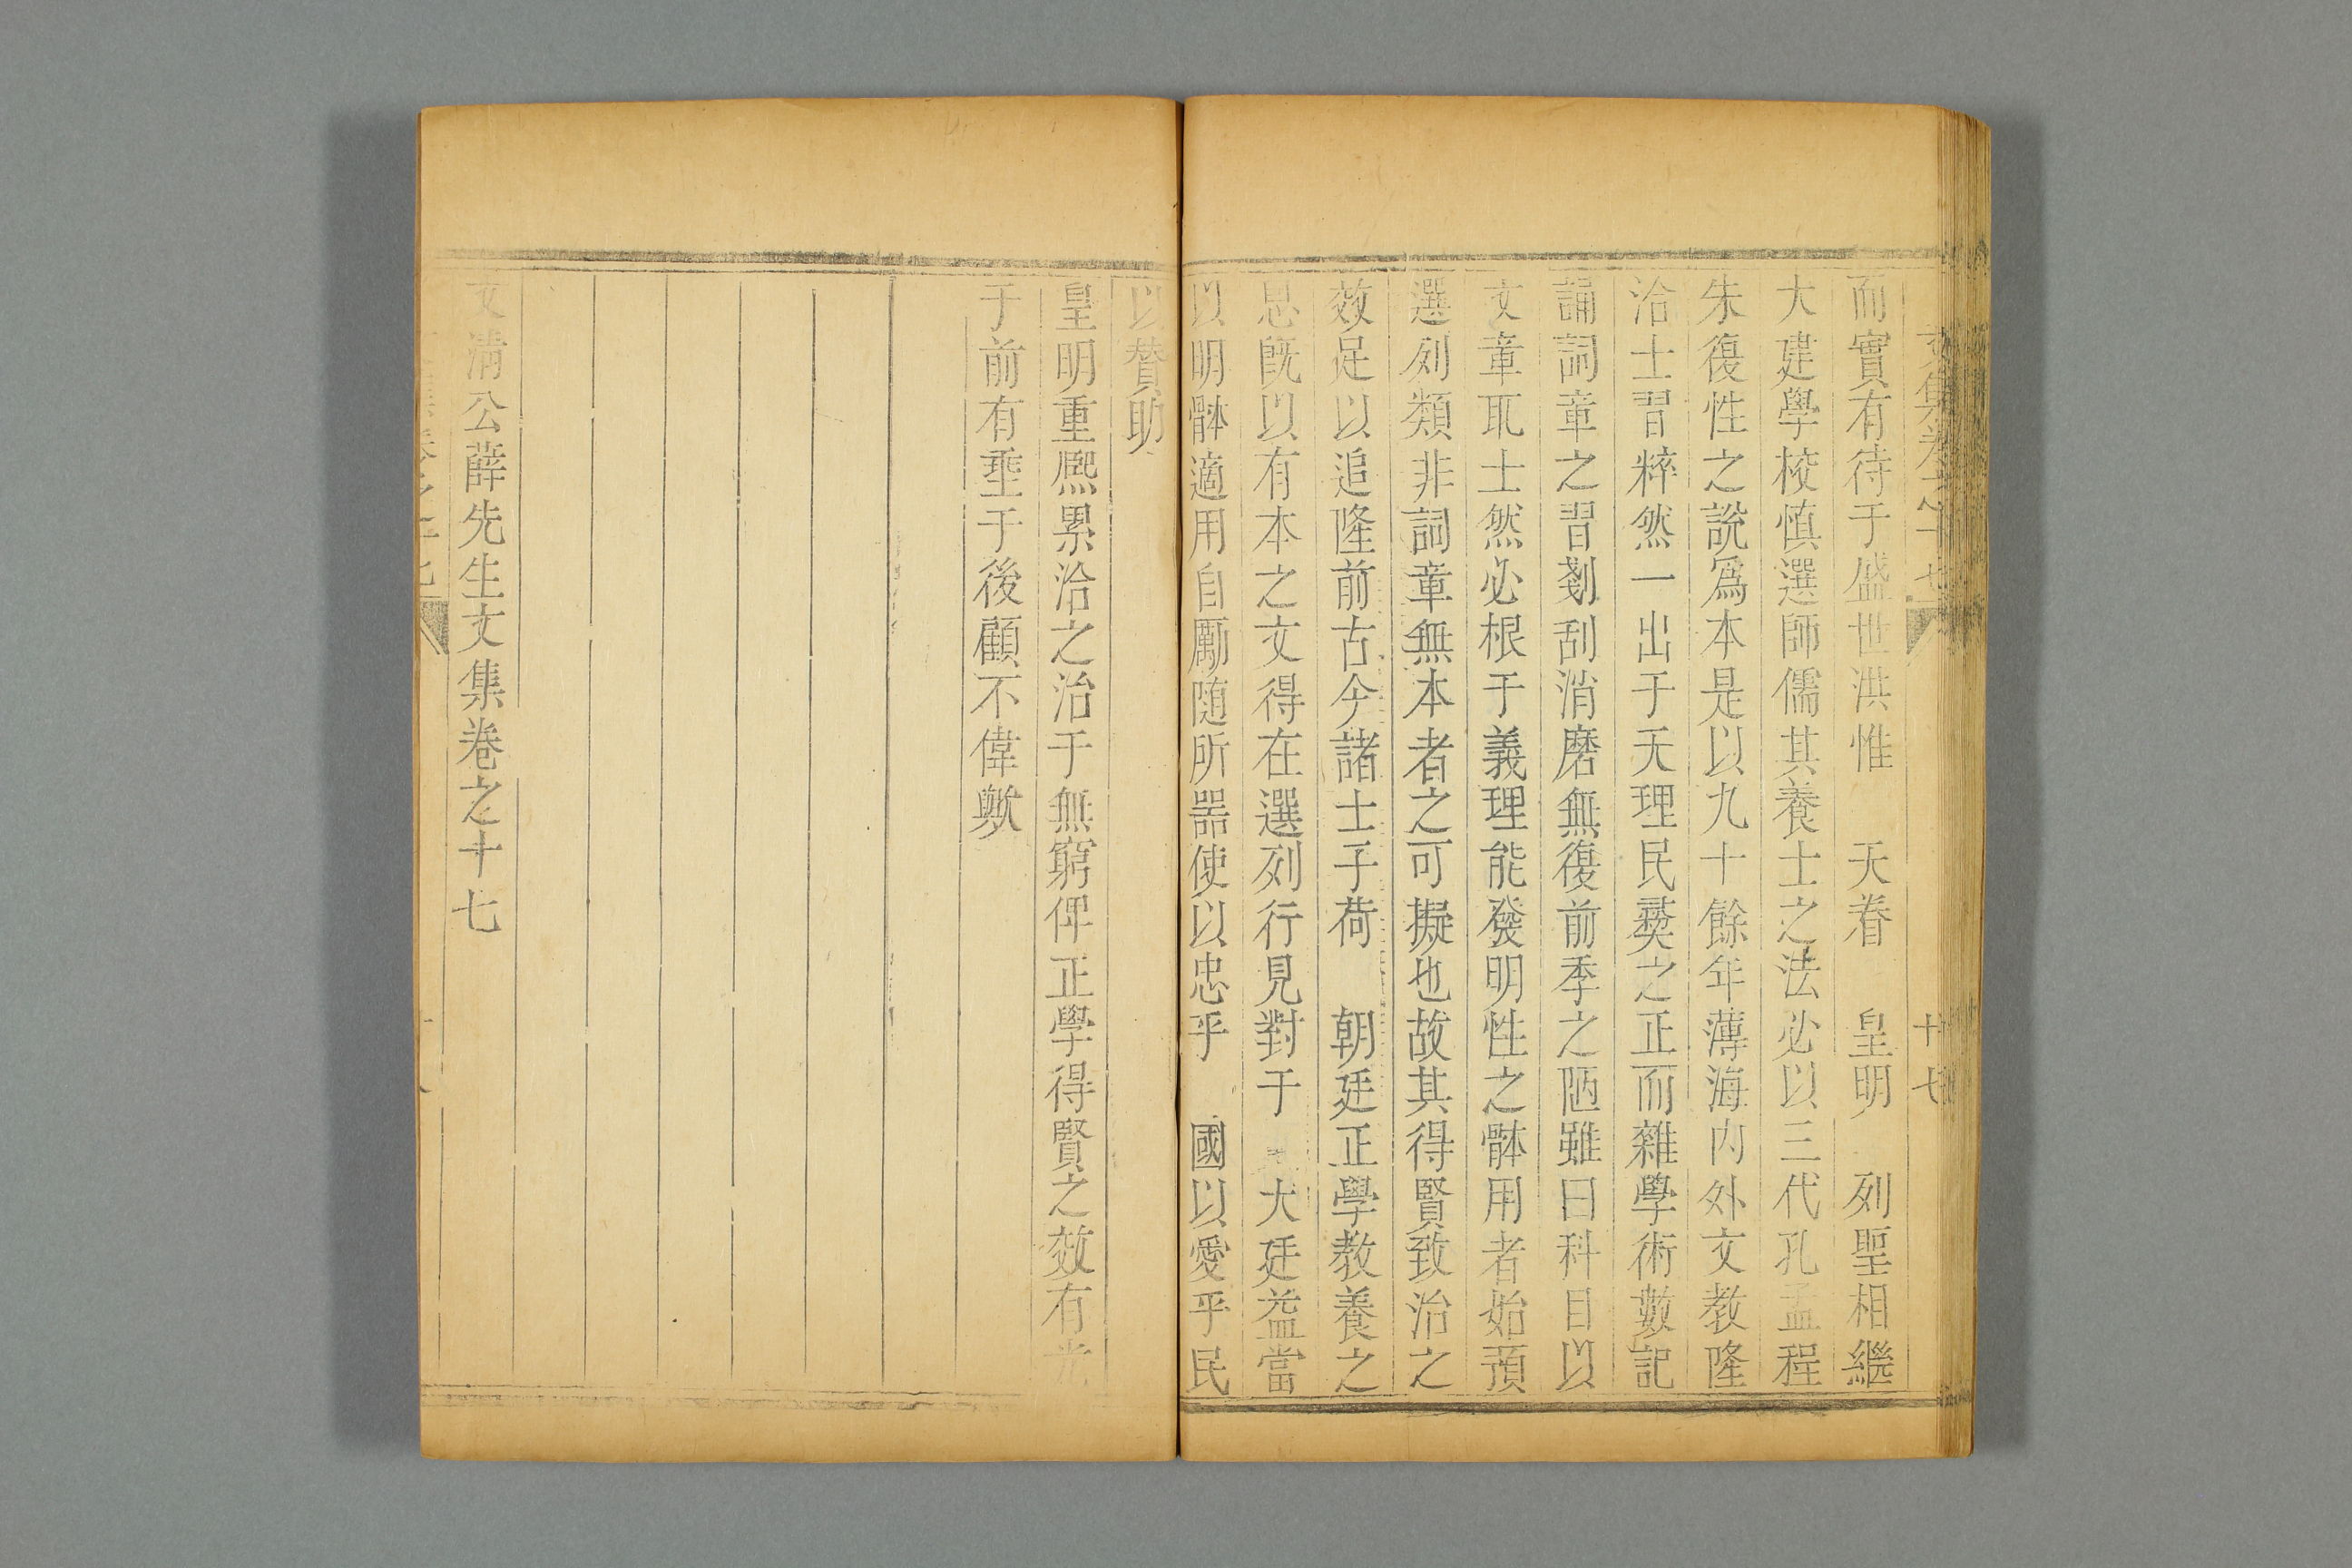 文集卷之十七 十七
而實有待于盛世洪惟 天眷 皇明 列聖相繼
大建學校慎選師儒其養士之法必以三代孔孟程
朱復性之說爲本是以九十餘年薄海內外文教隆
洽士習粹然一出于天理民彝之正而雜學術數記
誦詞章之習剗刮消磨無復前季之陋雖曰科目以
文章取士然必根于義理能發明性之體用者始預
選列類非詞章無本者之可擬也故其得賢致治之
效足以追隆前古今諸士子荷 朝廷正學教養之
恩旣以有本之文得在選列行見對于 大廷益當
以明體適用自勵随所噐使以忠乎 國以愛乎民
以賛助
皇明重熈累洽之治于無窮俾正學得賢之效有光
于前有垂于後顧不偉歟
文清公薛先生文集卷之十七